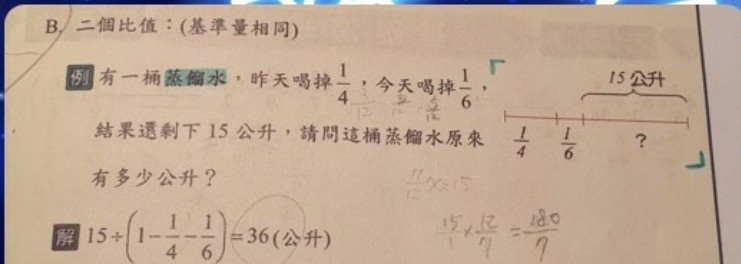 B. 二個比值：(基準量相同)
例 有一桶蒸餾水，昨天喝掉1/4，今天喝掉1/6，
結果還剩下 15 公升，請問這桶蒸餾水原來
有多少公升？
15 公升
1/4 1/6 ?
7/12 x=15
解 15÷(1-1/4-1/6)=36(公升)
15/1×12/7=180/7